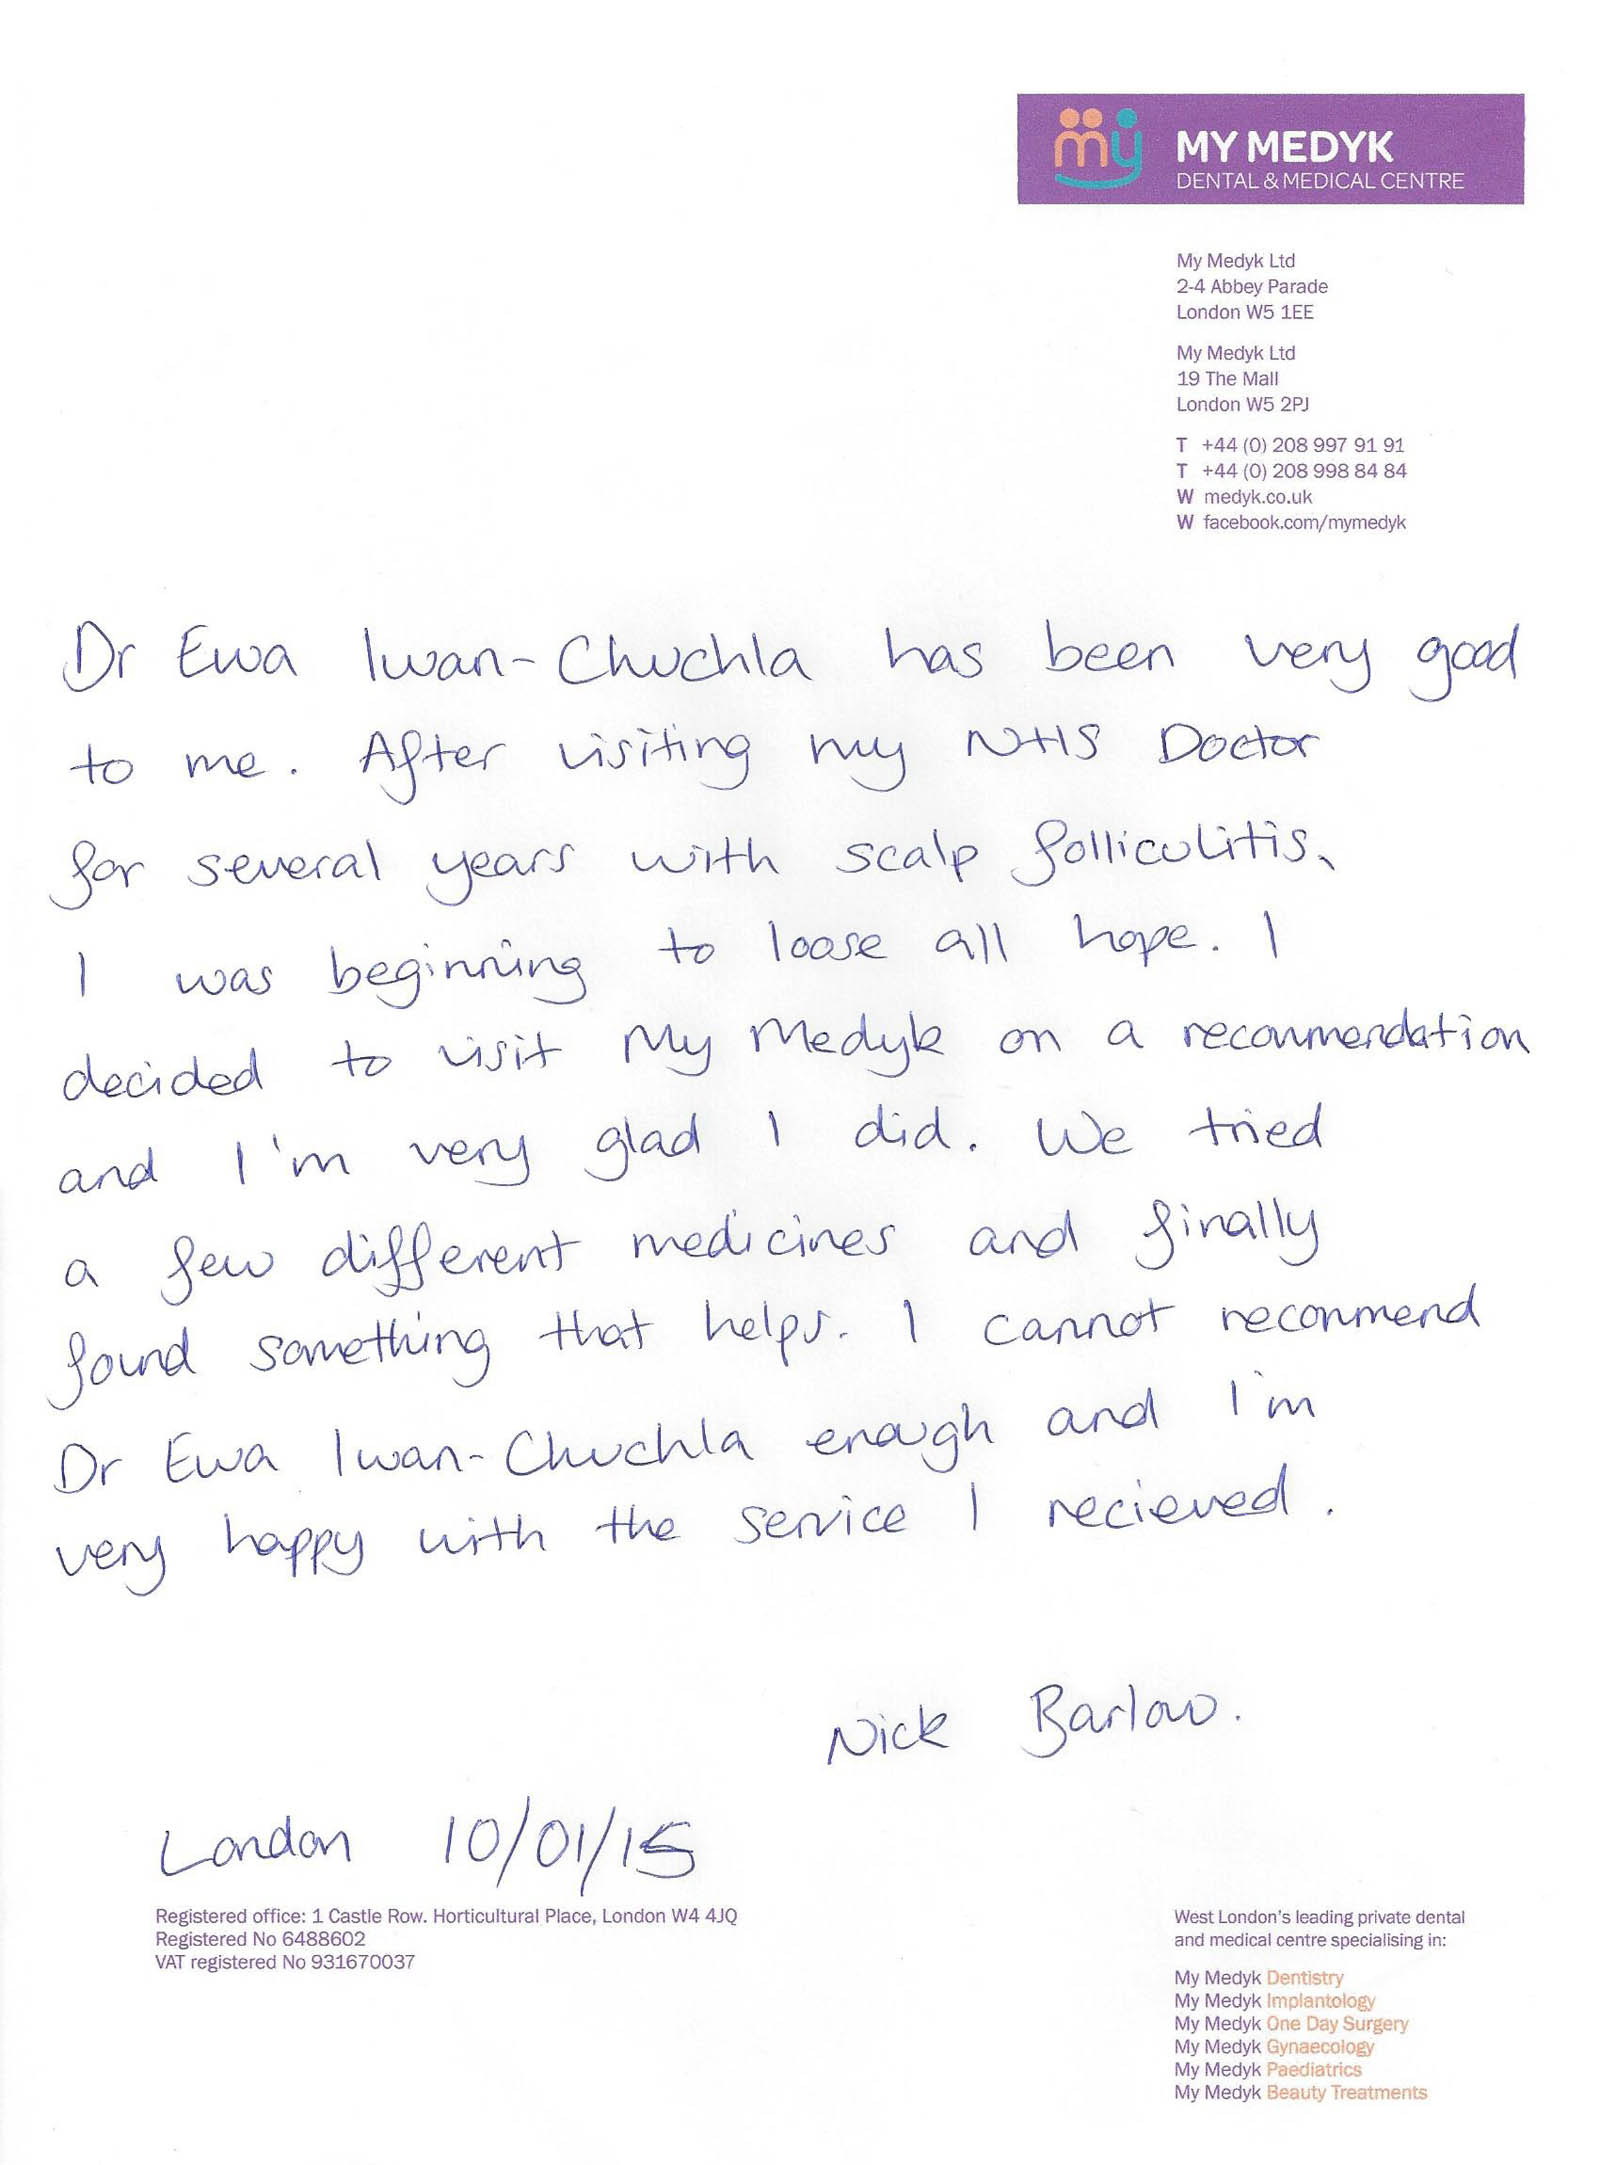 my MY MEDYK
DENTAL & MEDICAL CENTRE
My Medyk Ltd
2-4 Abbey Parade
London W5 1EE
My Medyk Ltd
19 The Mall
London W5 2PJ
T +44 (0) 208 997 91 91
T +44 (0) 208 998 84 84
W medyk.co.uk
W facebook.com/mymedyk
Dr Ewa Iwan-Chuchla has been very good
to me. After visiting my NHS Doctor
for several years with scalp folliculitis,
I was beginning to loose all hope. I
decided to visit My Medyk on a recommendation
and I'm very glad I did. We tried
a few different medicines and finally
found something that helps. I cannot recommend
Dr Ewa Iwan-Chuchla enough and I'm
very happy with the service I recieved.
Nick Barlow.
London 10/01/15
Registered office: 1 Castle Row. Horticultural Place, London W4 4JQ
Registered No 6488602
VAT registered No 931670037
West London's leading private dental
and medical centre specialising in:
My Medyk Dentistry
My Medyk Implantology
My Medyk One Day Surgery
My Medyk Gynaecology
My Medyk Paediatrics
My Medyk Beauty Treatments